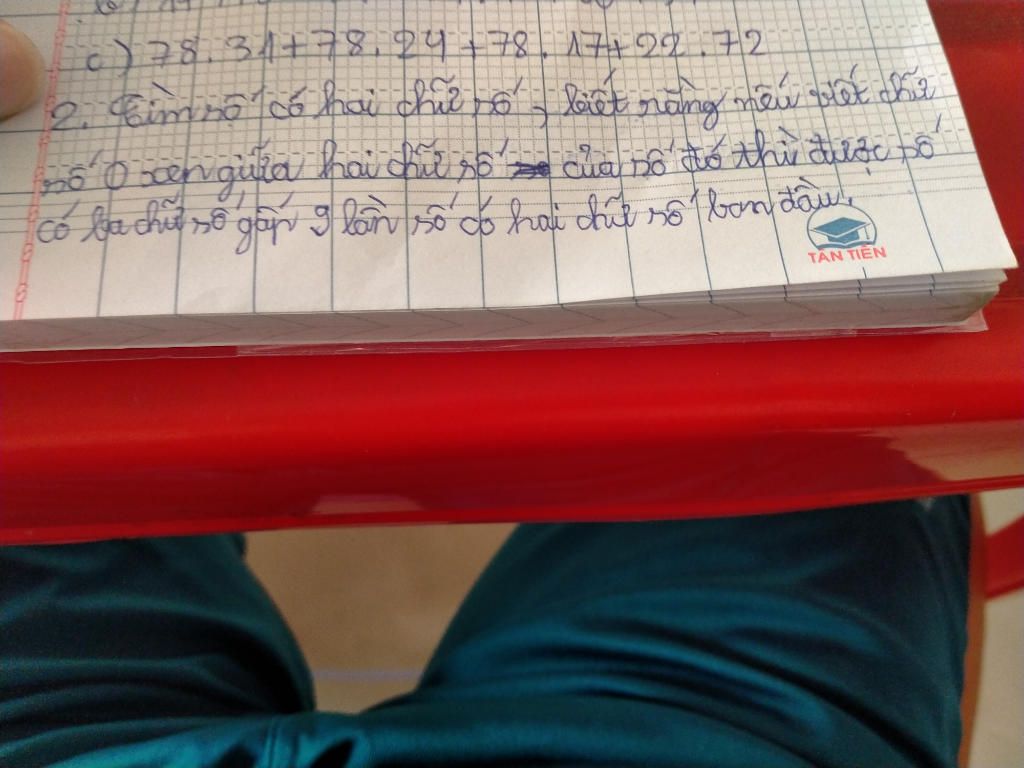 c) 78.31+78.24+78.17+22.72
2. Tìm số có hai chữ số, biết rằng nếu viết chữ
số 0 xen giữa hai chữ số của số đó thì được số
có ba chữ số gấp 9 lần số có hai chữ số ban đầu.
TAN TIẾN